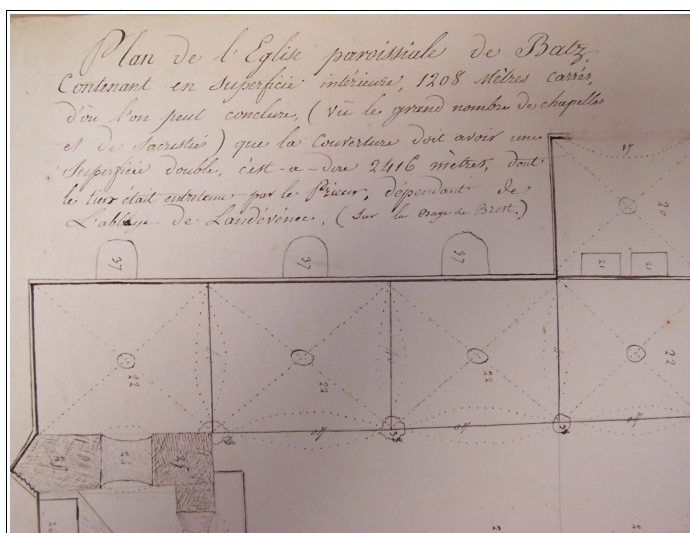 Plan de l'Eglise paroissiale de Batz,
Contenant en superficie intérieure, 1208 Mètres carrés,
d'où l'on peut conclure, (vû le grand nombre de chapelles
et de Sacristies) que la Couverture doit avoir une
Superficie double, c'est-a-dire 2416 mètres, dont
le tiers était entretenu par le Prieur, dépendant de
L'abbaye de Landévénec, (sur la Baye de Brest.)
20
21 21
37 37 37
22 22 22 22
40 40